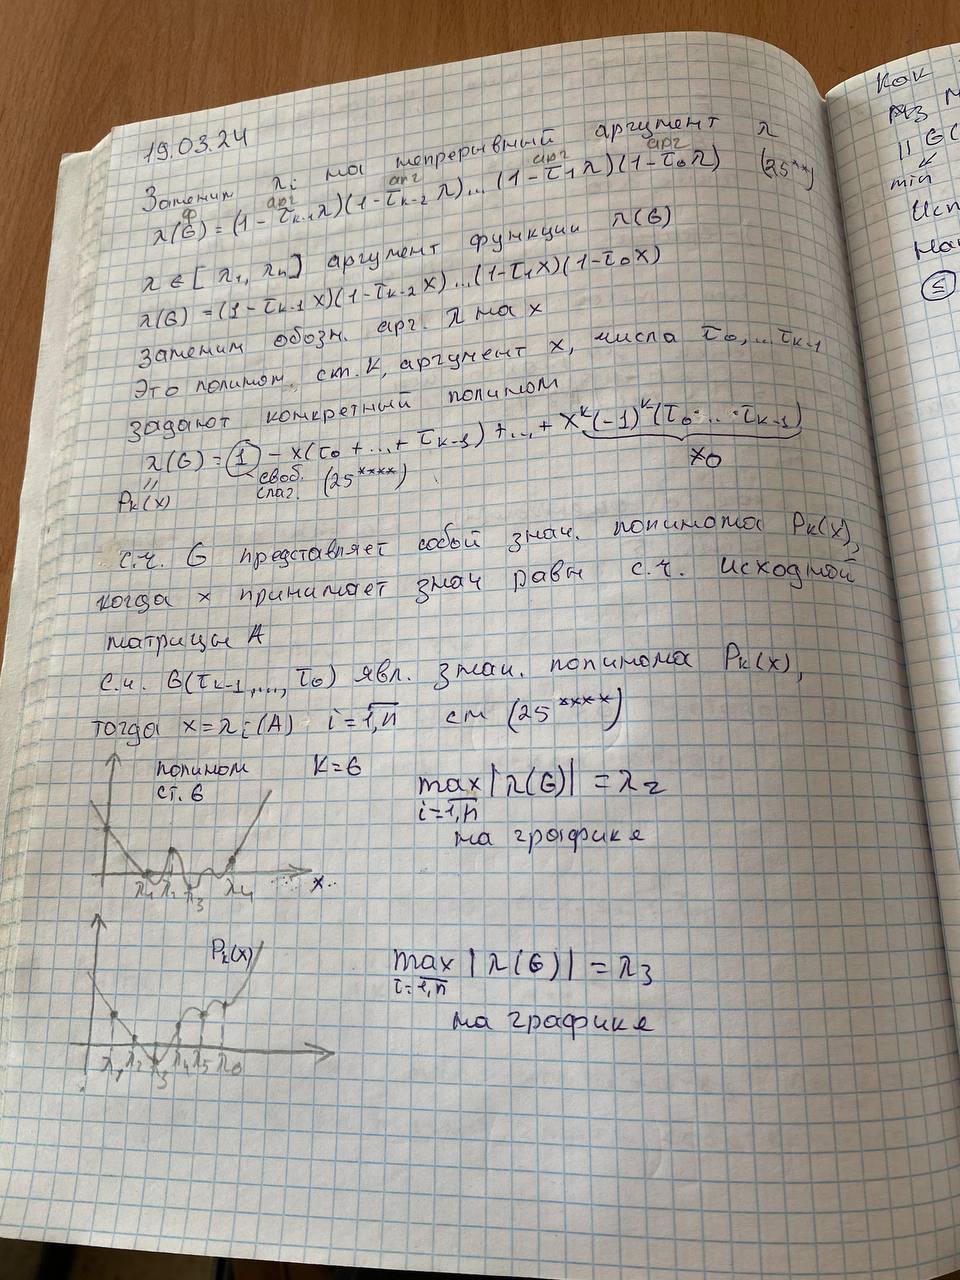 19.03.24
Заменим λi на непрерывный аргумент λ
ф арг арг арг арг
λ(G) = (1 - τk-1 λ)(1 - τk-2 λ)...(1 - τ1 λ)(1 - τ0 λ) (25**)
λ ∈ [λ1, λn] аргумент функции λ(G)
λ(G) = (1 - τk-1 x)(1 - τk-2 x)...(1 - τ1 x)(1 - τ0 x)
заменим обозн. арг. λ на x
Это полином. ст. k, аргумент x, числа τ0,..τk-1
задают конкретный полином
λ(G) = 1 - x(τ0 + ... + τk-1) + ... + x^k (-1)^k (τ0 · .. · τk-1)
≠0
Pk(x)
своб. слаг. (25****)
с.ч. G представляет собой знач. полинома Pk(x),
когда x принимает знач равн с.ч. исходной
матрицы A
с.ч. G(τk-1,..., τ0) явл. знач. полинома Pk(x),
тогда x = λi(A) i = 1,n см (25****)
полином K=6
ст. 6
max |λ(G)| = λ2
i=1,n
на графике
λ1 λ2 λ3 λ4 x
Pk(x)
max |λ(G)| = λ3
i=1,n
на графике
λ1 λ2 λ3 λ4 λ5 λ6
как
из
|| G(
min
Исп